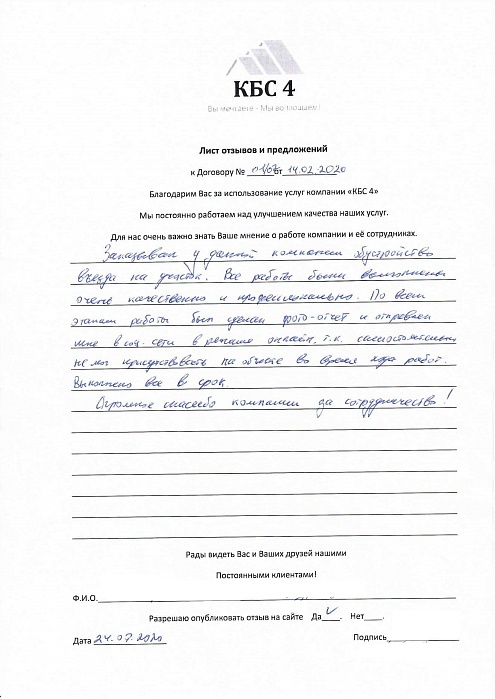 КБС 4
Вы мечтаете - Мы воплощаем!
Лист отзывов и предложений
к Договору № от 14.02.2020
Благодарим Вас за использование услуг компании «КБС 4»
Мы постоянно работаем над улучшением качества наших услуг.
Для нас очень важно знать Ваше мнение о работе компании и её сотрудниках.
Заказывал у данной компании обустройство
въезда на участок. Все работы были выполнены
очень качественно и профессионально. По всем
этапам работы был сделан фото-отчет и отправлен
мне в соц. сети в режиме онлайн, т.к. самостоятельно
не мог присутствовать на объекте во время хода работ.
Выполнено все в срок
Огромное спасибо компании за сотрудничество!
Рады видеть Вас и Ваших друзей нашими
Постоянными клиентами!
Ф.И.О.
Разрешаю опубликовать отзыв на сайте Да V. Нет .
Дата 24.07.2020 Подпись